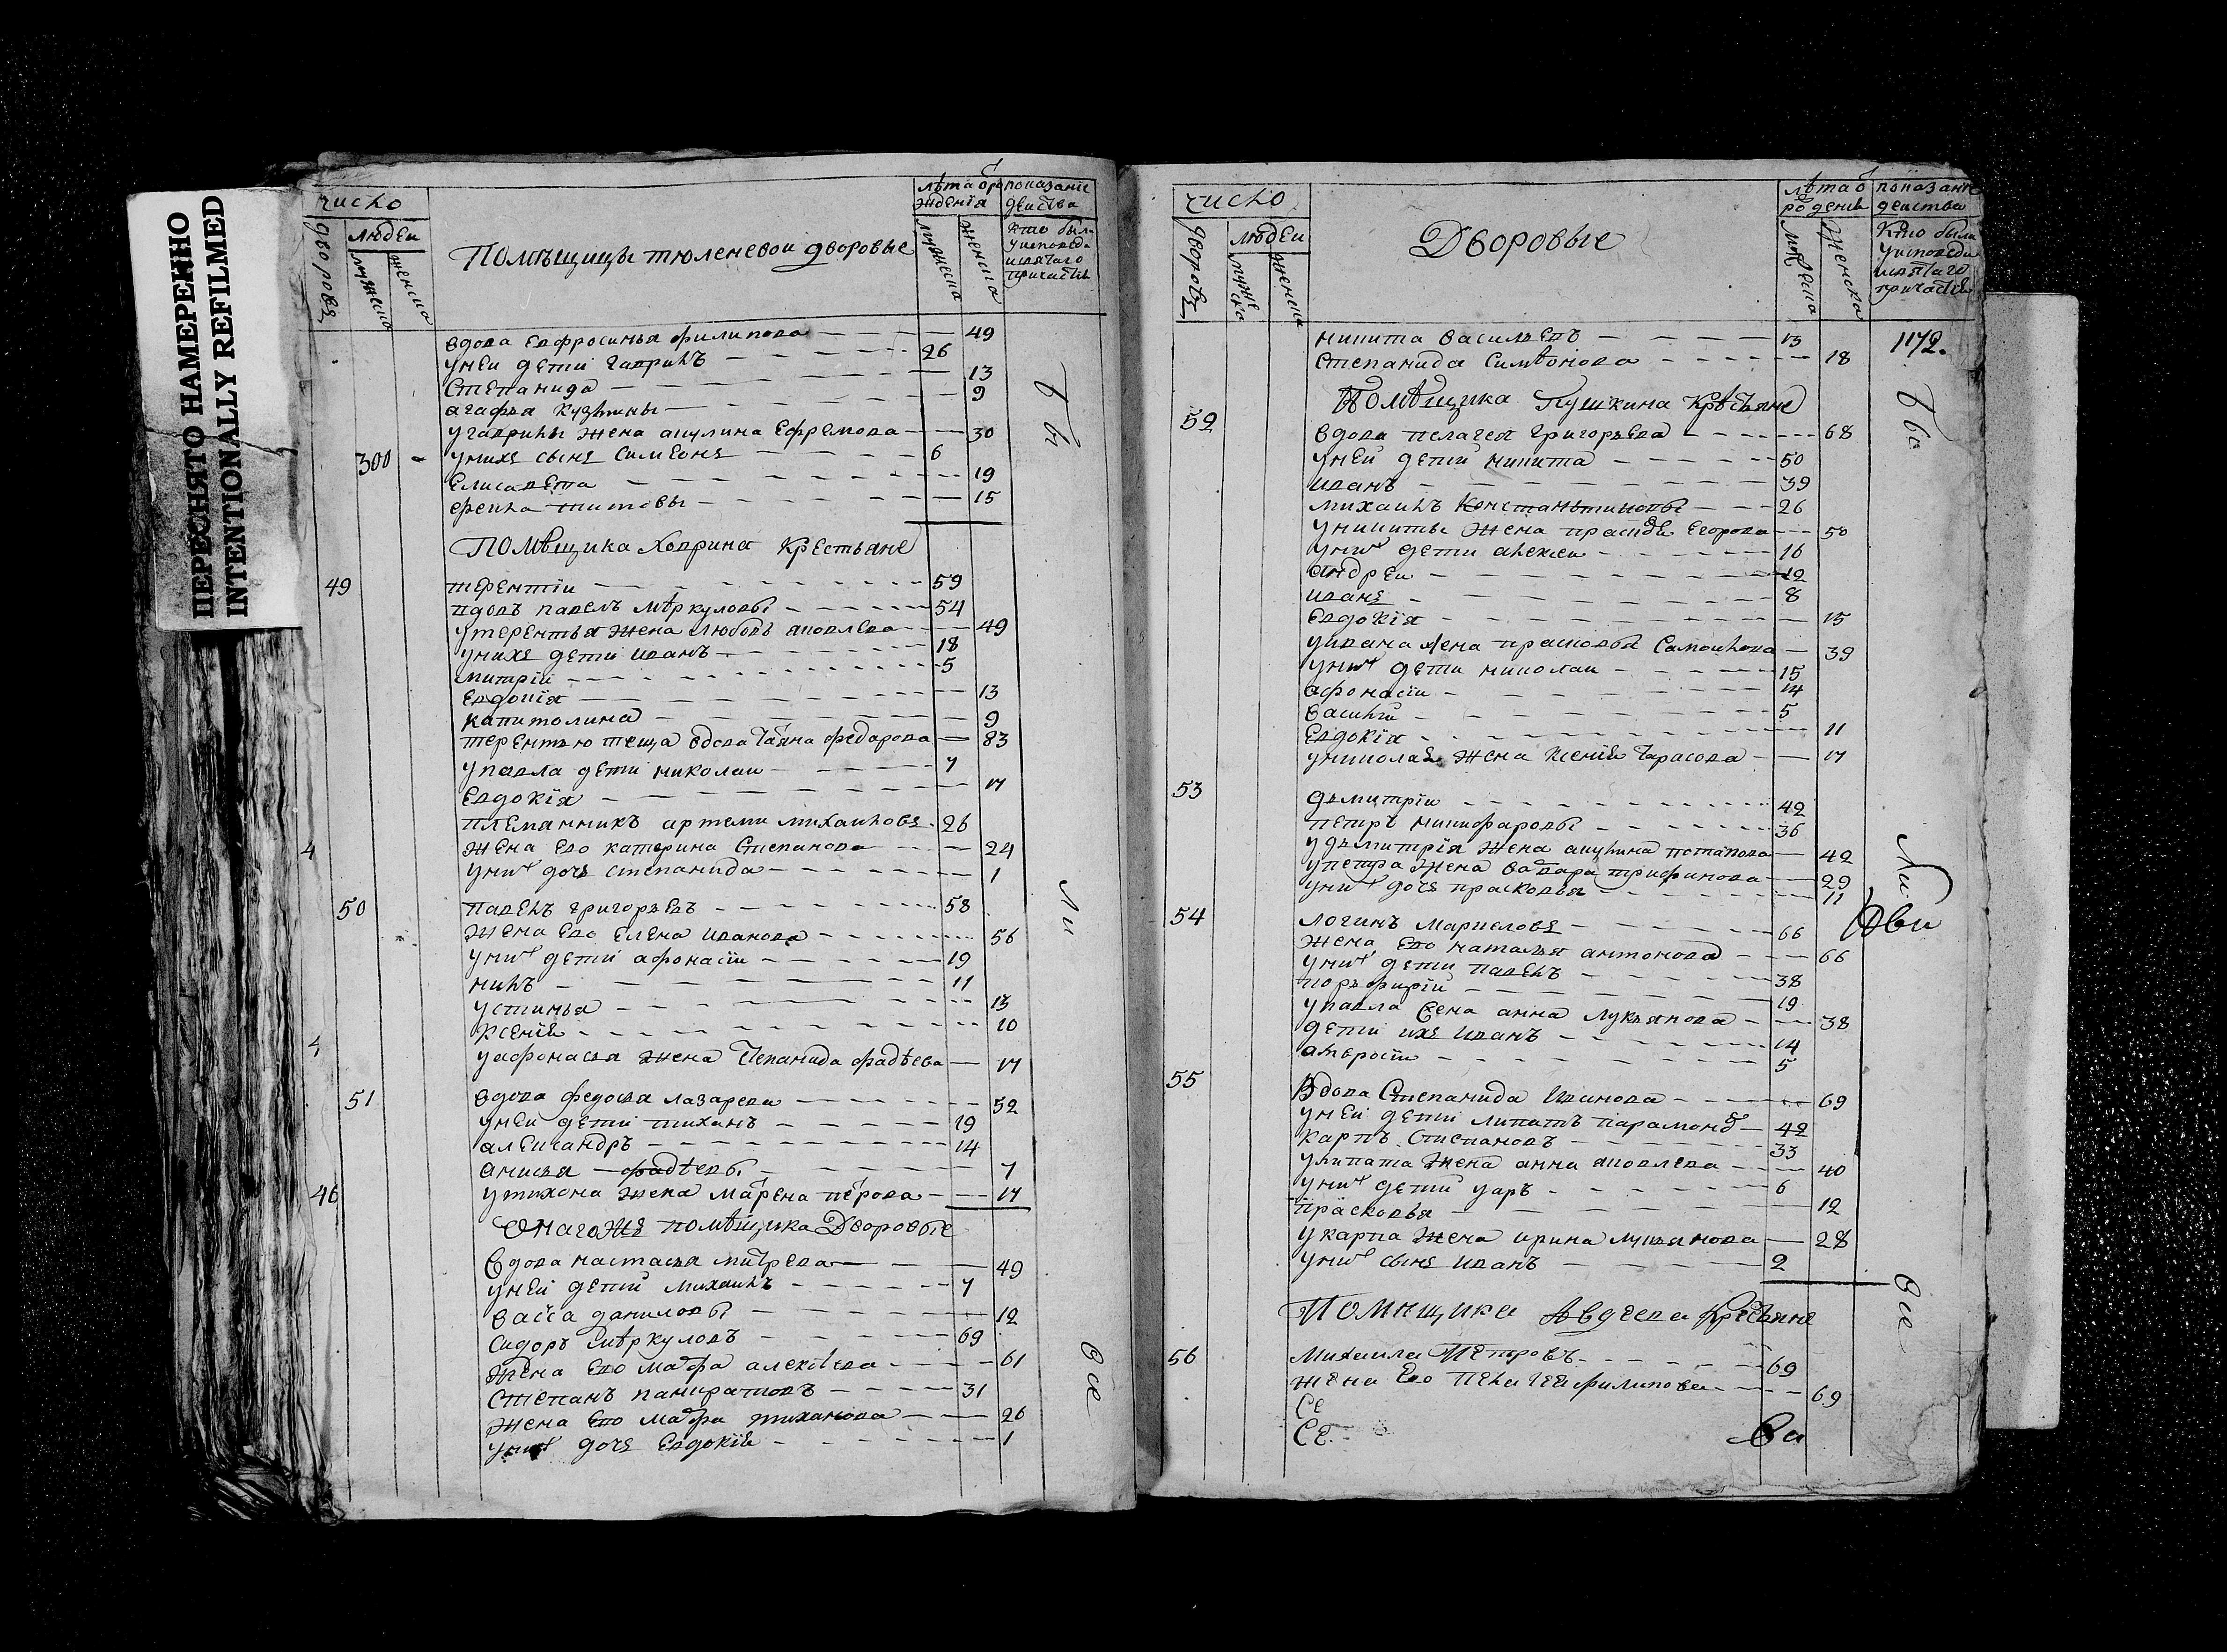 ПЕРЕСНЯТО НАМЕРЕННО
INTENTIONALLY REFILMED
число
дворовъ
людеи
мужеска
женска
Помѣщицы тюленевои дворовые
лѣта от рождения
мужеска
женска
показание действа
кто былъ у исповеди и святаго причастия
вдова Евфросинья филипова 49
унеи дети гаврилъ 26
Степанида 13
агафья кузмины 9
угаврилы жена акулина Ефремова 30
300
унихъ сынъ Симеонъ 6
Елисавета 19
фекла титовы 15
бы
Помѣщика Ховрина крестьяне
49 терентии 59
вдовъ павелъ мѣркуловы 54
утерентья жена любовь яковлева 49
унихъ дети иванъ 18
митрии 5
Евдокия 13
капитолина 9
терентью теща вдова татяна федарова 83
упавла дети николаи 7
Евдокия 17
племянникъ артеми михаиловъ 26
4 жена Ево катерина Степанова 24
унихъ дочь степанида 1
50 павелъ григорьевъ 58
ли
жена Ево Елена иванова 56
унихъ дети афонасіи 19
нилъ 11
устинья 13
4 ксения 10
уафонасья жена степанида фадѣева 17
51 вдова федосья лазарева 52
унеи дети тиханъ 19
александръ 14
анисья фадѣевы 7
46 утихона жена матрена петрова 17
Онагожъ помѣщика Дворовые
вдова настасья митрева 49
унеи дети михаилъ 7
васса даниловы 12
Сидоръ мѣркуловъ 69
жена Ево марфа алексѣева 61
все
Степанъ панкратовъ 31
жена Ево марфа тиханова 26
унихъ дочь Евдокия 1
число
дворовъ
людеи
мужеска
женска
Дворовые
лѣта от рождения
мужеска
женска
показание действа
кто былъ у исповеди и святаго причастия
никита васильевъ 13
1172.
Степанида Симѣонова 18
Помѣщика Пушкина крѣстьяне
52 вдова пелагея григорьева 68
унеи дети никита 50
иванъ 39
михаилъ констаньтиновы 26
уникиты жена прасковья Егорова 50
унихъ дети алексеи 16
андреи 12
иванъ 8
Евдокія 15
уивана жена прасковья Самоилова 39
унихъ дети николаи 15
афонасіи 14
васили 5
Евдокія 11
униколая жена ксения тарасова 17
53 дьмитріи 42
петръ никифаровы 36
удьмитрія жена акулина потапова 42
упетра жена вавара трифинова 29
ли
унихъ дочь прасковья 11
54 логинъ маркеловъ 66
жена Ево наталья антонова 66
унихъ дети павелъ 38
порьфирии 19
упавла жена анна лукьянова 38
дети ихъ иванъ 14
амьросіи 5
55 Вдова Степанида Иванова 69
унеи дети липатъ парамонов 42
карпъ Степановъ 33
улипата жена анна яковлева 40
унихъ дети уаръ 6
прасковья 12
укарпа жена ирина лукьянова 28
унихъ сынъ иванъ 2
все
Помищика Авдеева крестьяне
56 михаила Петровъ 69
жена Ево Пелагея филипова 69
Се
Се